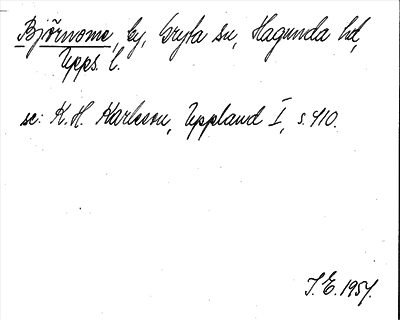 Björnome, by, Gryta sn, Hagunda hd,
Upps. l.
se: K.H. Karlsson, Uppland I, s. 410.
J.E. 1957.